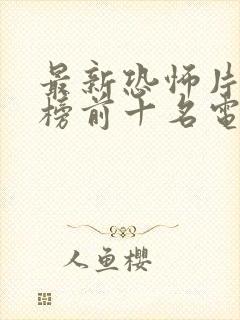 最新恐怖片
榜前十名電
人鱼櫻